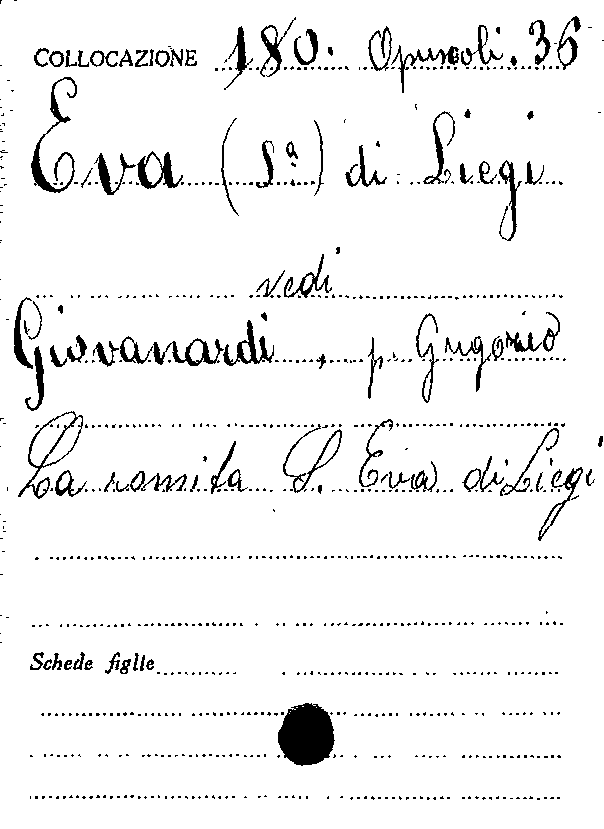 COLLOCAZIONE 180. Opuscoli. 36
Eva (Sª) di Liegi
vedi
Giovanardi, p. Grigorio
La romita S. Eva di Liegi
Schede figlie